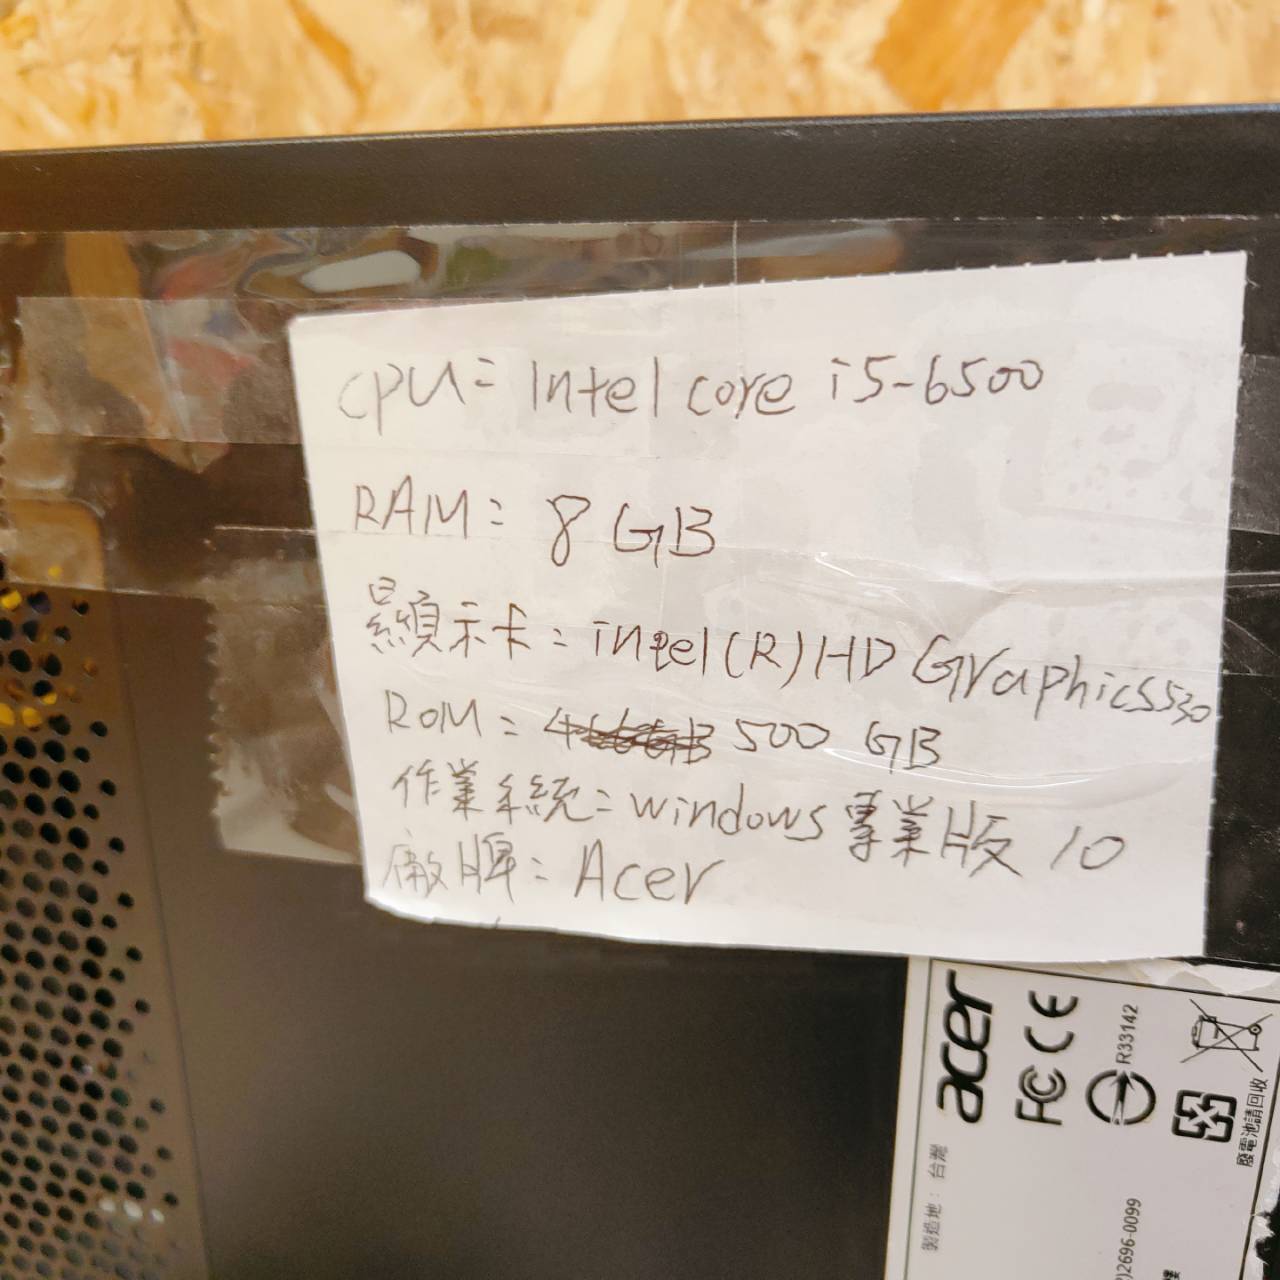 CPU: Intel core i5-6500
RAM: 8 GB
顯示卡: intel(R) HD Graphics530
ROM: 500 GB
作業系統: windows 專業版 10
廠牌: Acer
acer
FC CE
R33142
廢電池請回收
製造地: 台灣
)2696-0099
樓